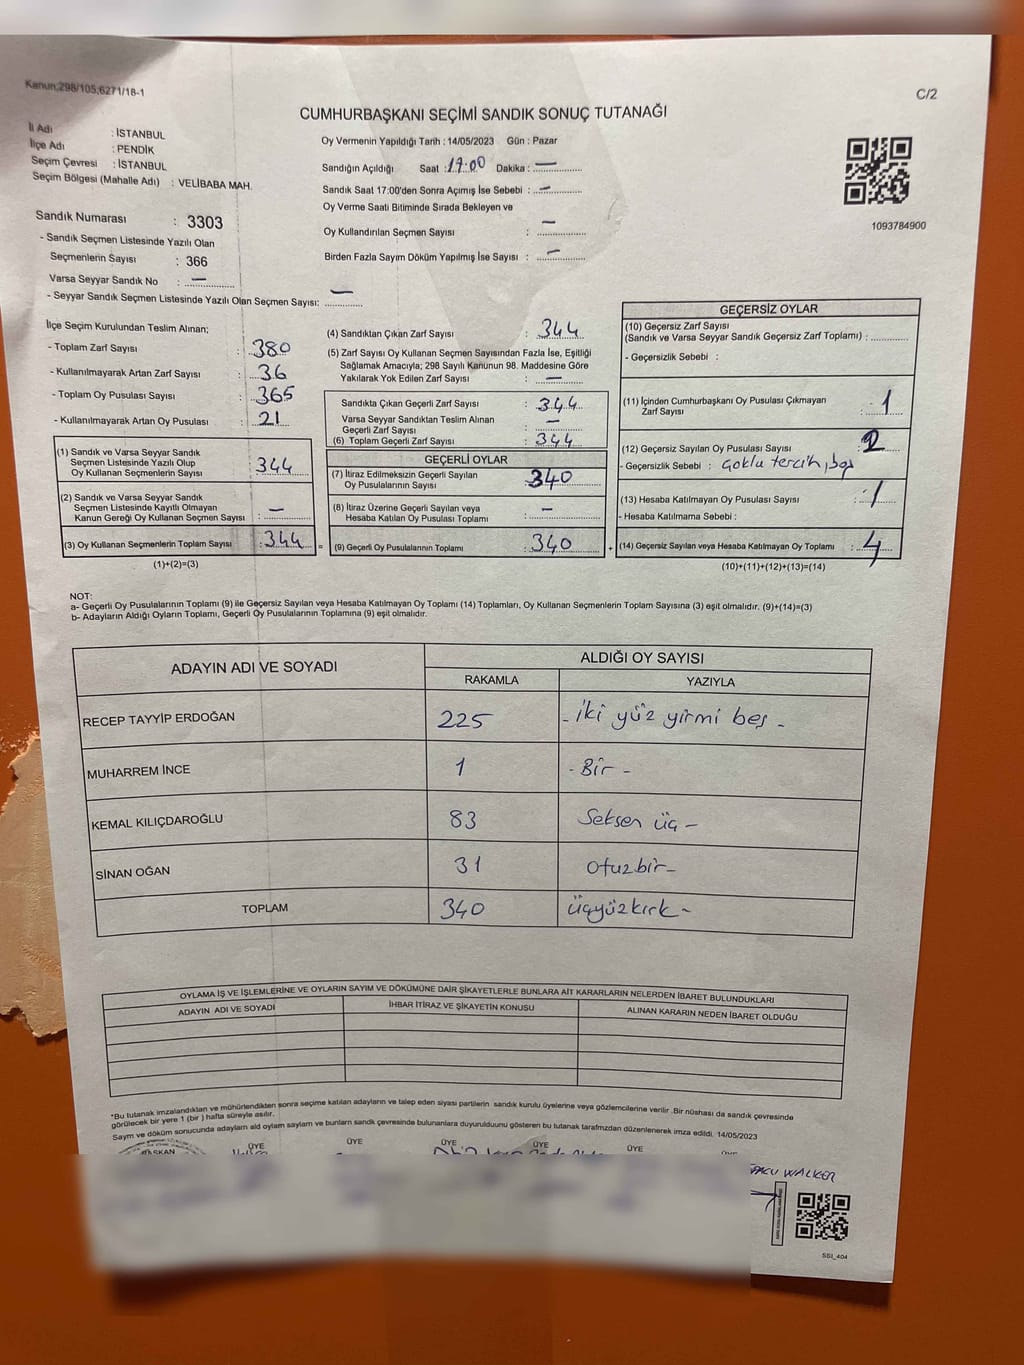 Kanun;298/105;6271/18-1
C/2
CUMHURBAŞKANI SEÇİMİ SANDIK SONUÇ TUTANAĞI
İl Adı : İSTANBUL
İlçe Adı : PENDİK
Seçim Çevresi : İSTANBUL
Seçim Bölgesi (Mahalle Adı) : VELİBABA MAH.
Oy Vermenin Yapıldığı Tarih : 14/05/2023 Gün : Pazar
Sandığın Açıldığı Saat : 17:00 Dakika : —
Sandık Saat 17:00'den Sonra Açımış İse Sebebi : —
Oy Verme Saati Bitiminde Sırada Bekleyen ve
Oy Kullandırılan Seçmen Sayısı : —
Birden Fazla Sayım Döküm Yapılmış İse Sayısı : —
1093784900
Sandık Numarası : 3303
- Sandık Seçmen Listesinde Yazılı Olan
Seçmenlerin Sayısı : 366
Varsa Seyyar Sandık No : —
- Seyyar Sandık Seçmen Listesinde Yazılı Olan Seçmen Sayısı: —
İlçe Seçim Kurulundan Teslim Alınan;
- Toplam Zarf Sayısı : 380
- Kullanılmayarak Artan Zarf Sayısı : 36
- Toplam Oy Pusulası Sayısı : 365
- Kullanılmayarak Artan Oy Pusulası : 21
(1) Sandık ve Varsa Seyyar Sandık
Seçmen Listesinde Yazılı Olup
Oy Kullanan Seçmenlerin Sayısı : 344
(2) Sandık ve Varsa Seyyar Sandık
Seçmen Listesinde Kayıtlı Olmayan
Kanun Gereği Oy Kullanan Seçmen Sayısı : —
(3) Oy Kullanan Seçmenlerin Toplam Sayısı : 344
(1)+(2)=(3)
(4) Sandıktan Çıkan Zarf Sayısı : 344
(5) Zarf Sayısı Oy Kullanan Seçmen Sayısından Fazla İse, Eşitliği
Sağlamak Amacıyla; 298 Sayılı Kanunun 98. Maddesine Göre
Yakılarak Yok Edilen Zarf Sayısı : —
Sandıkta Çıkan Geçerli Zarf Sayısı : 344
Varsa Seyyar Sandıktan Teslim Alınan
Geçerli Zarf Sayısı : —
(6) Toplam Geçerli Zarf Sayısı : 344
GEÇERLİ OYLAR
(7) İtiraz Edilmeksizin Geçerli Sayılan
Oy Pusulalarının Sayısı : 340
(8) İtiraz Üzerine Geçerli Sayılan veya
Hesaba Katılan Oy Pusulası Toplamı : —
= (9) Geçerli Oy Pusulalarının Toplamı : 340
GEÇERSİZ OYLAR
(10) Geçersiz Zarf Sayısı
(Sandık ve Varsa Seyyar Sandık Geçersiz Zarf Toplamı) :
- Geçersizlik Sebebi :
(11) İçinden Cumhurbaşkanı Oy Pusulası Çıkmayan
Zarf Sayısı : 1
(12) Geçersiz Sayılan Oy Pusulası Sayısı : 2
- Geçersizlik Sebebi : Çoklu tercih, boş
(13) Hesaba Katılmayan Oy Pusulası Sayısı : 1
- Hesaba Katılmama Sebebi :
+ (14) Geçersiz Sayılan veya Hesaba Katılmayan Oy Toplamı : 4
(10)+(11)+(12)+(13)=(14)
NOT:
a- Geçerli Oy Pusulalarının Toplamı (9) ile Geçersiz Sayılan veya Hesaba Katılmayan Oy Toplamı (14) Toplamları, Oy Kullanan Seçmenlerin Toplam Sayısına (3) eşit olmalıdır. (9)+(14)=(3)
b- Adayların Aldığı Oyların Toplamı, Geçerli Oy Pusulalarının Toplamına (9) eşit olmalıdır.
ADAYIN ADI VE SOYADI ALDIĞI OY SAYISI
RAKAMLA YAZIYLA
RECEP TAYYİP ERDOĞAN 225 - iki yüz yirmi beş -
MUHARREM İNCE 1 - Bir -
KEMAL KILIÇDAROĞLU 83 Seksen üç -
SİNAN OĞAN 31 otuzbir -
TOPLAM 340 üçyüzkırk -
OYLAMA İŞ VE İŞLEMLERİNE VE OYLARIN SAYIM VE DÖKÜMÜNE DAİR ŞİKAYETLERLE BUNLARA AİT KARARLARIN NELERDEN İBARET BULUNDUKLARI
ADAYIN ADI VE SOYADI İHBAR İTİRAZ VE ŞİKAYETİN KONUSU ALINAN KARARIN NEDEN İBARET OLDUĞU
*Bu tutanak imzalandıktan ve mühürlendikten sonra seçime katılan adayların ve talep eden siyasi partilerin sandık kurulu üyelerine veya gözlemcilerine verilir. Bir nüshası da sandık çevresinde
görülecek bir yere 1 (bir ) hafta süreyle asılır.
Sayım ve döküm sonucunda adayların aldığı oyların sayısını ve bunların sandık çevresinde bulunanlara duyurulduğunu gösteren bu tutanak tarafımızdan düzenlenerek imza edildi. 14/05/2023
BAŞKAN ÜYE ÜYE ÜYE ÜYE ÜYE
WALKER
SSI_404